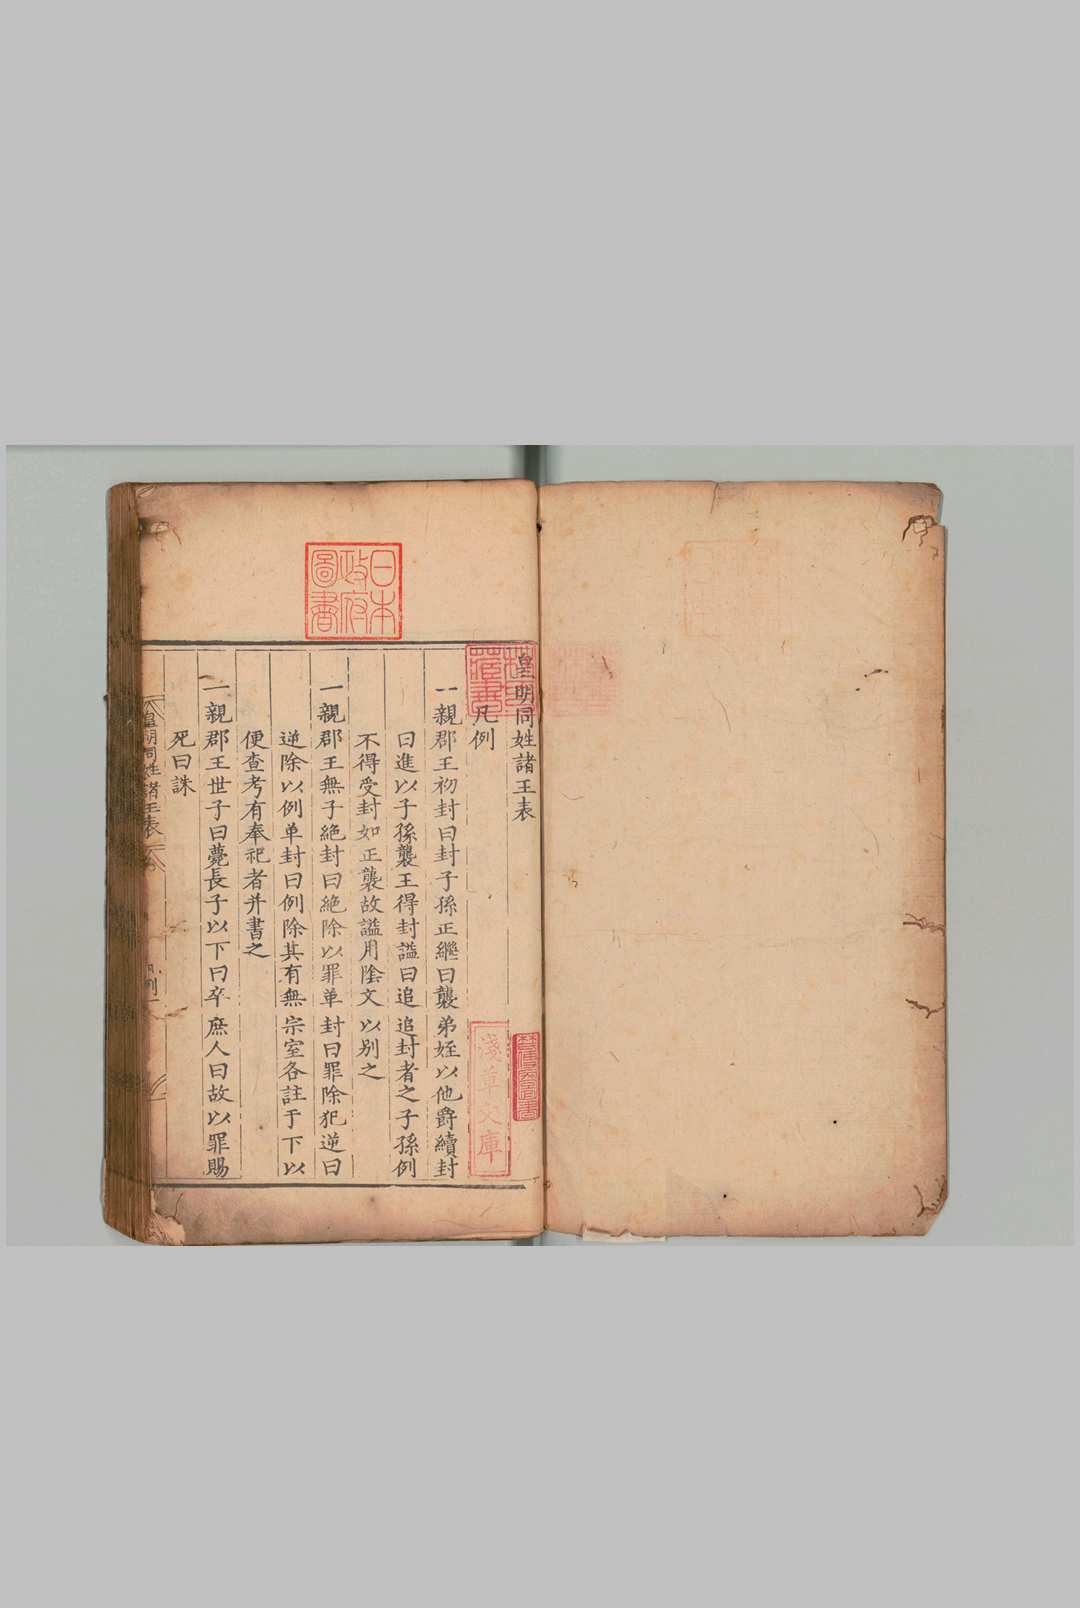 皇明同姓諸王表
凡例
一親郡王初封曰封子孫正繼曰襲弟姪以他爵續封
曰進以子孫襲王得封謚曰追追封者之子孫例
不得受封如正襲故謚用陰文以别之
一親郡王無子絶封曰絶除以罪单封曰罪除犯逆曰
逆除以例单封曰例除其有無宗室各註于下以
便查考有奉祀者并書之
一親郡王世子曰薨長子以下曰卒庶人曰故以罪賜
死曰誅
皇明同姓諸王表
凡例
一
日本政府圖書
淺草文庫